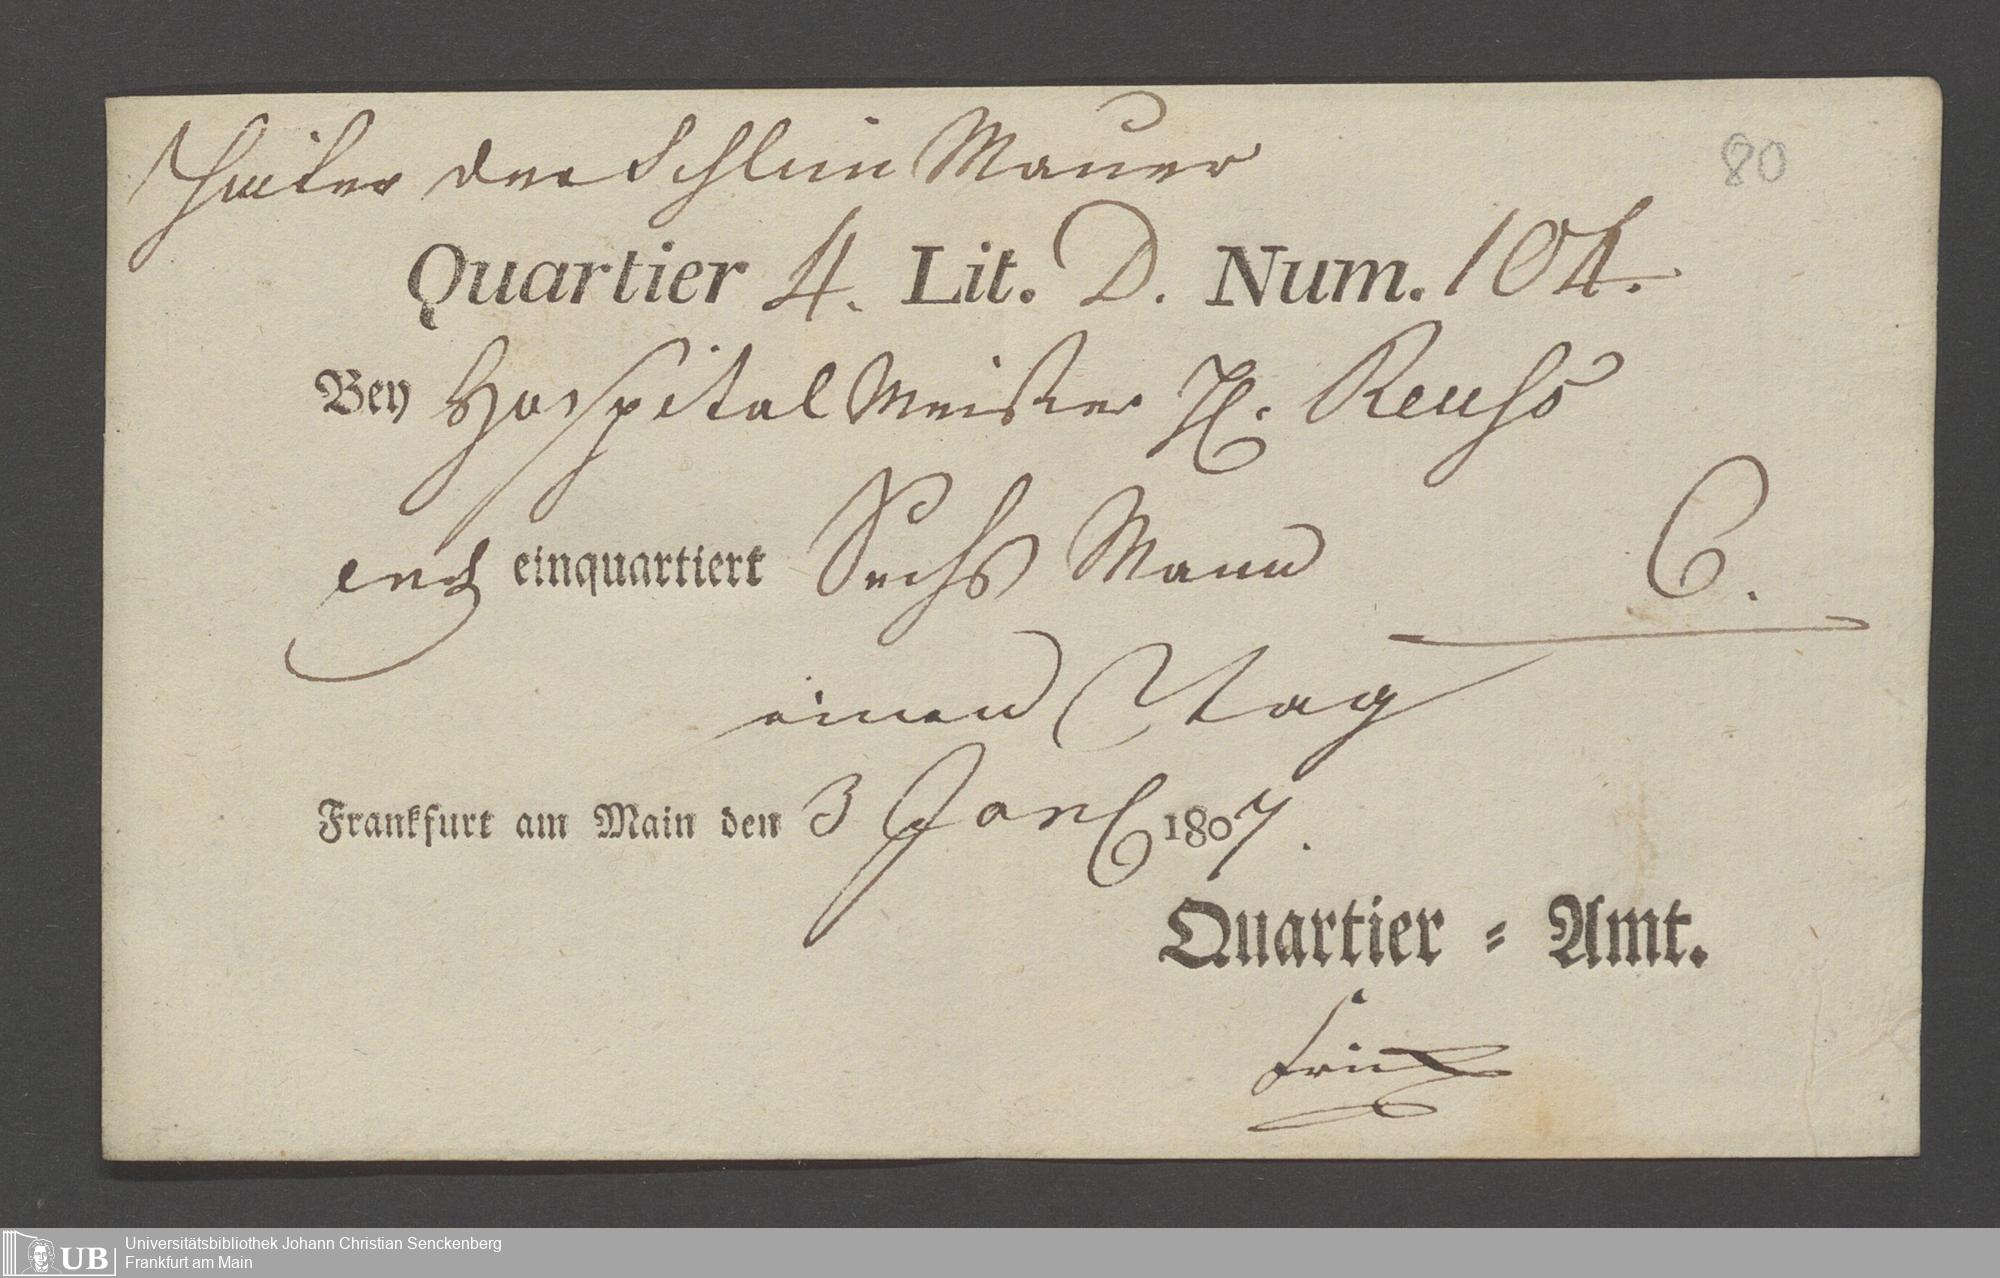 Hinter der Schlim Mauer
80
Quartier 4. Lit. D. Num. 104.
Bey Hospital Meister H. Reuss
einquartiert Sechs Mann 6.
einen Tag
Frankfurt am Main den 3 Jan 1807.
Quartier-Amt.
UB Universitätsbibliothek Johann Christian Senckenberg
Frankfurt am Main